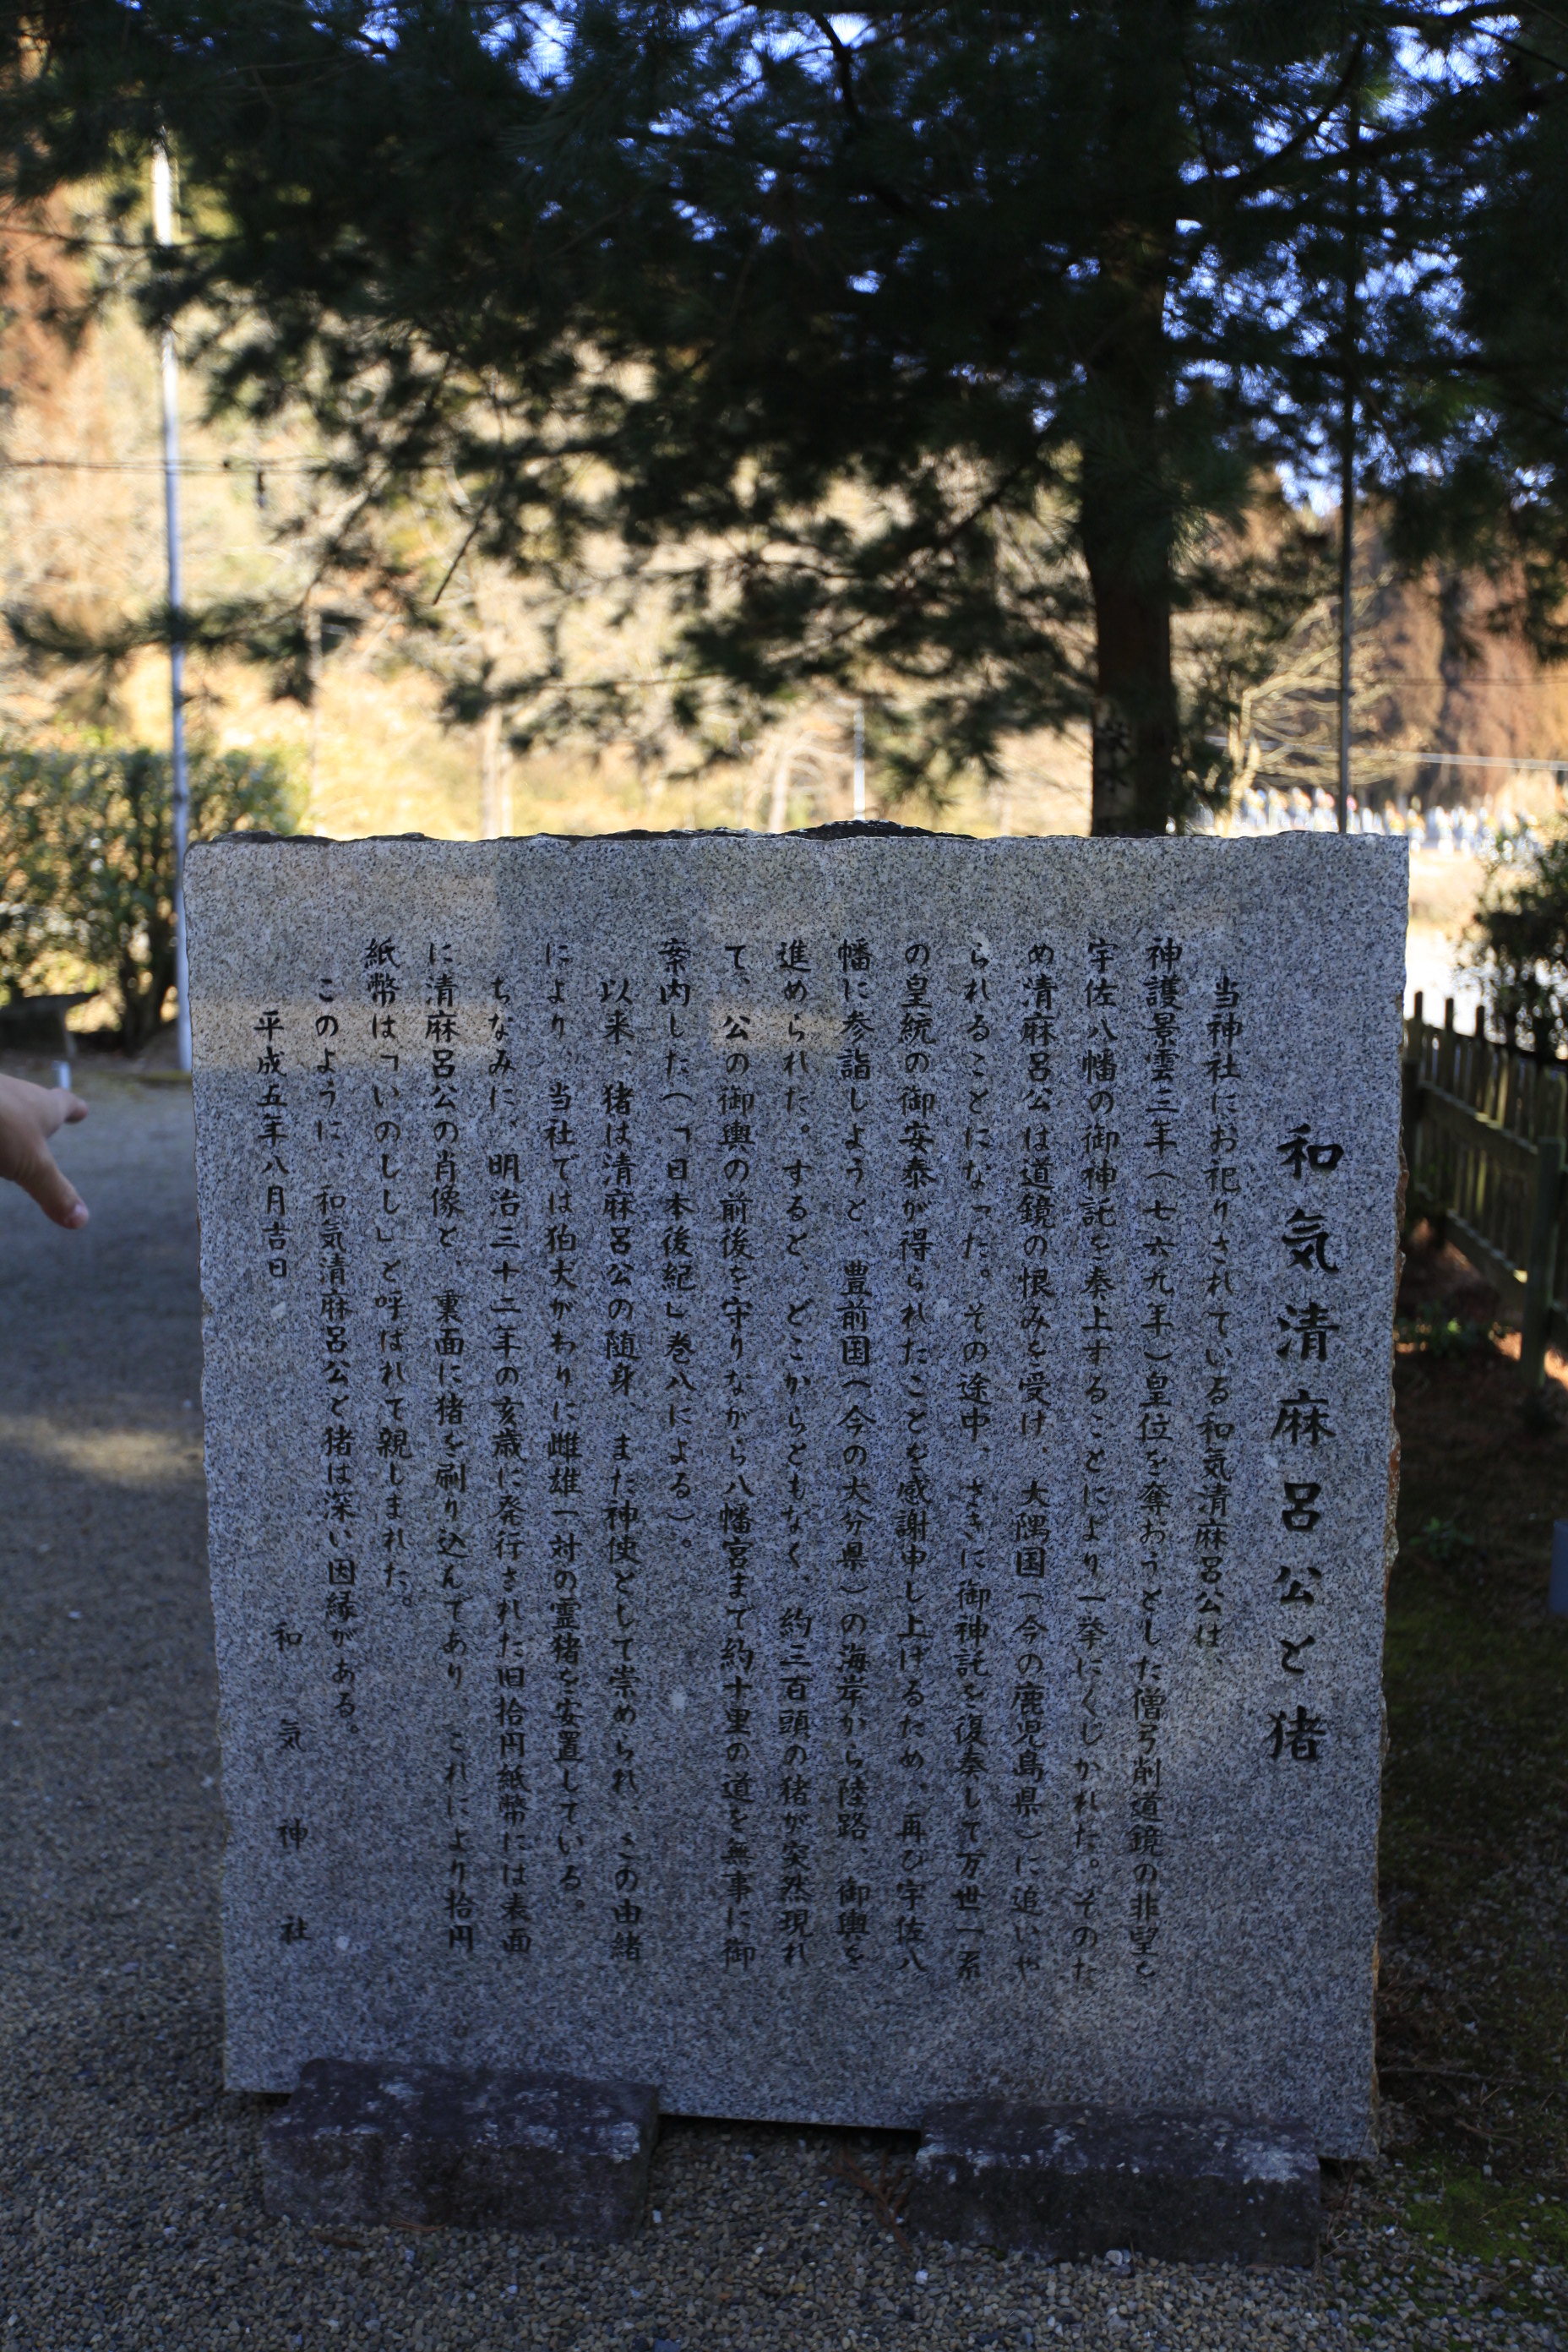 和気清麻呂公と猪
当神社にお祀りされている和気清麻呂公は、
神護景雲三年(七六九年)皇位を奪おうとした僧弓削道鏡の非望を
宇佐八幡の御神託を奏上することにより一挙にくじかれた。そのた
め清麻呂公は道鏡の恨みを受け、大隅国(今の鹿児島県)に追いや
られることになった。その途中、さきに御神託を復奏して万世一系
の皇統の御安泰が得られたことを感謝申し上げるため、再び宇佐八
幡に参詣しようと、豊前国(今の大分県)の海岸から陸路、御輿を
進められた。すると、どこからともなく、約三百頭の猪が突然現れ
て、公の御輿の前後を守りながら八幡宮まで約十里の道を無事に御
案内した(「日本後紀」巻八による)。
以来、猪は清麻呂公の随身、また神使として崇められ、この由緒
により、当社では狛犬がわりに雌雄一対の霊猪を安置している。
ちなみに、明治三十二年の亥歳に発行された旧拾円紙幣には表面
に清麻呂公の肖像と、裏面に猪を刷り込んであり、これにより拾円
紙幣は「いのしし」と呼ばれて親しまれた。
このように、和気清麻呂公と猪は深い因縁がある。
平成五年八月吉日
和気神社